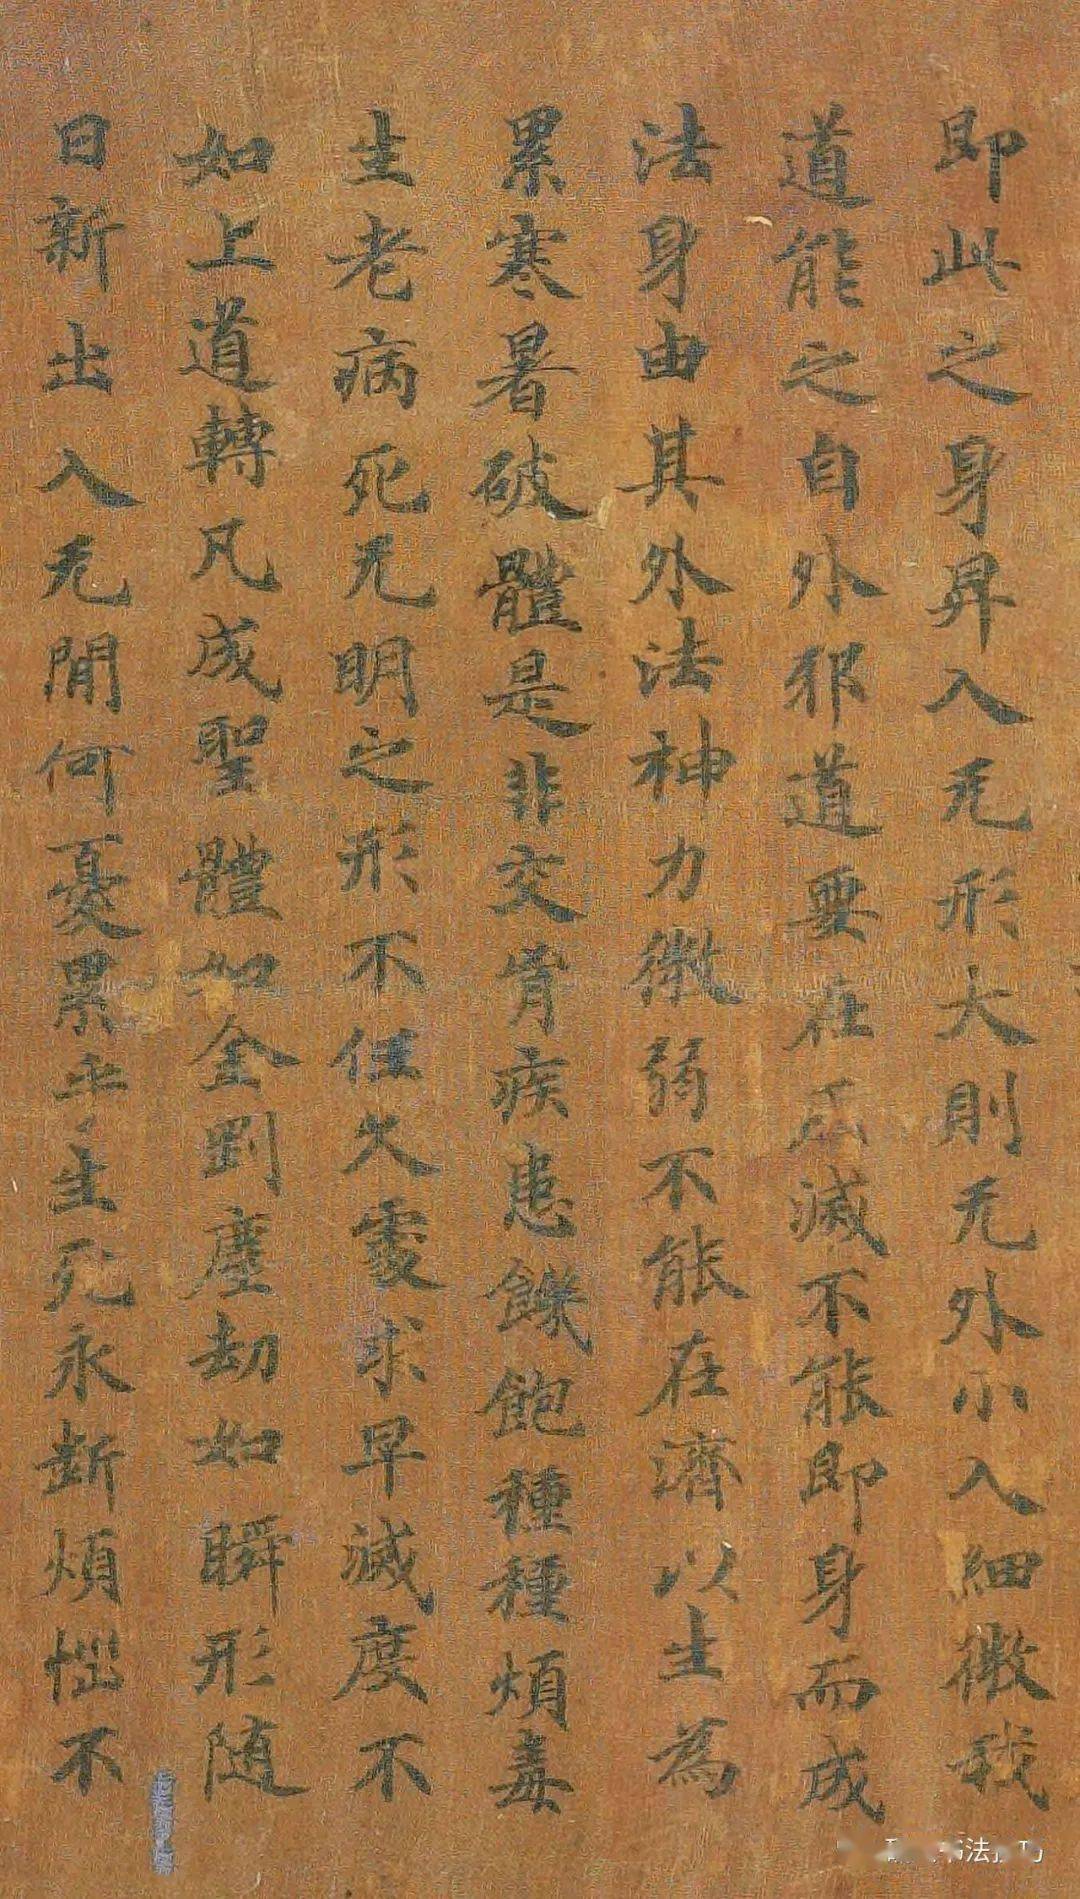 即此之身昇入无形大則无外小入細微我
道能之自外邪道要在瓜滅不能即身而成
法身由其外法神力微弱不能在濟以生為
累寒暑破體是非交脊疾患飢飽種種煩毒
生老病死无明之形不任久處求早滅度不
如上道轉凡成聖體如金剛塵劫如瞬形随
日新出入无閒何憂累乎生死永斷煩惱不